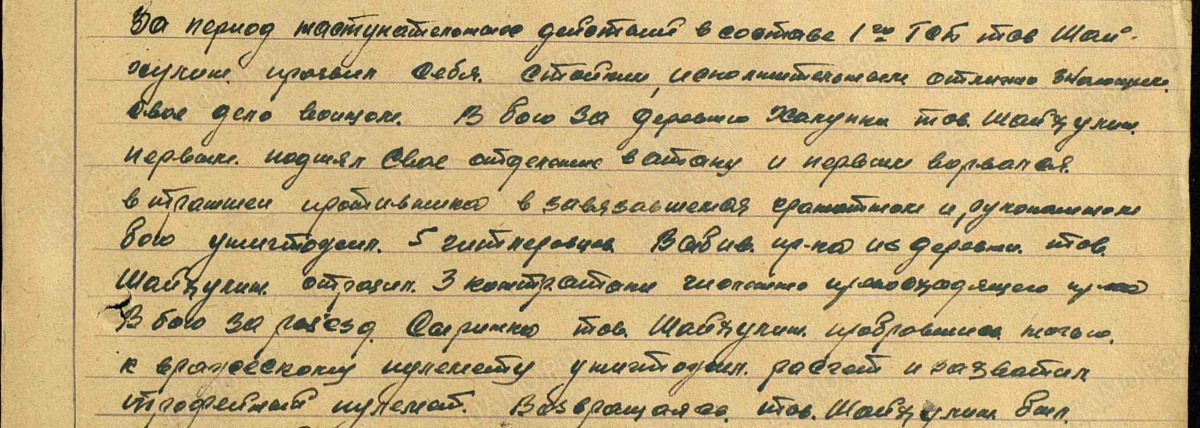 За период наступательных действий в составе 1го ТСБ тов Шай-
хулин проявил себя стойким, исполнительным отлично знающим
свое дело воином. В бою за деревню тов. Шайхулин
первым поднял свое отделение в атаку и первым ворвался
в траншеи противника в завязавшемся гранатном и рукопашном
бою уничтожил 5 гитлеровцев. пр-ка из деревни тов.
Шайхулин отразил 3 контратаки численно превосходящего пр-ка
В бою за разъезд тов. Шайхулин пробравшись ночью
к вражескому пулемету уничтожил расчет и захватил
трофейный пулемет. Возвращаясь тов. Шайхулин был